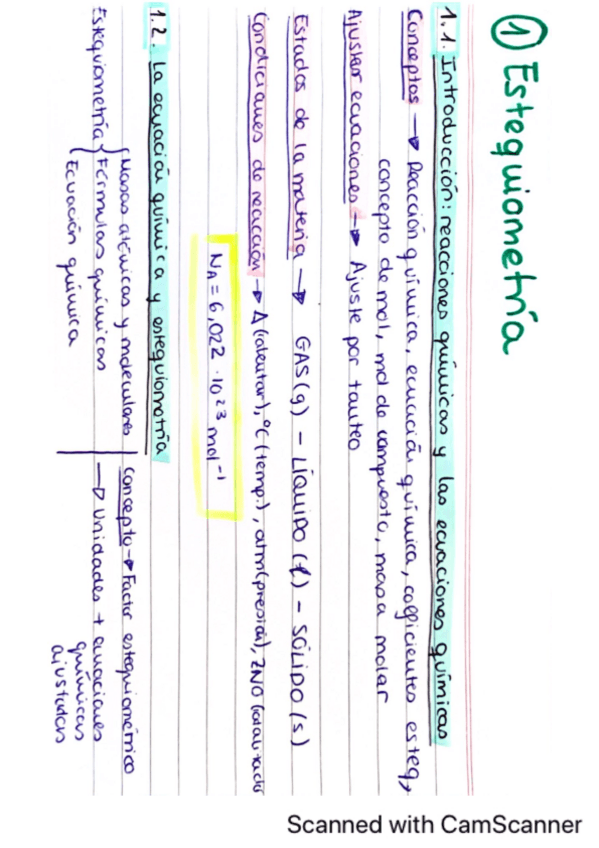 ① Estequiometría
1.1. Introducción: reacciones químicas y las ecuaciones químicas
Conceptos → Reacción química, ecuación química, coeficientes esteq,
concepto de mol, mol de compuesto, masa molar
Ajustar ecuaciones → Ajuste por tanteo
Estados de la materia → GAS (g) - LÍQUIDO (l) - SÓLIDO (s)
Condiciones de reacción → Δ (calentar), ºC (temp.), atm (presión),
NA = 6,022 · 10^23 mol^-1
1.2. La ecuación química y estequiometría
Masas atómicas y moleculares
Estequiometría { Fórmulas químicas
Ecuación química
Concepto → Factor estequiométrico
→ Unidades + ecuaciones
químicas
ajustadas
Scanned with CamScanner